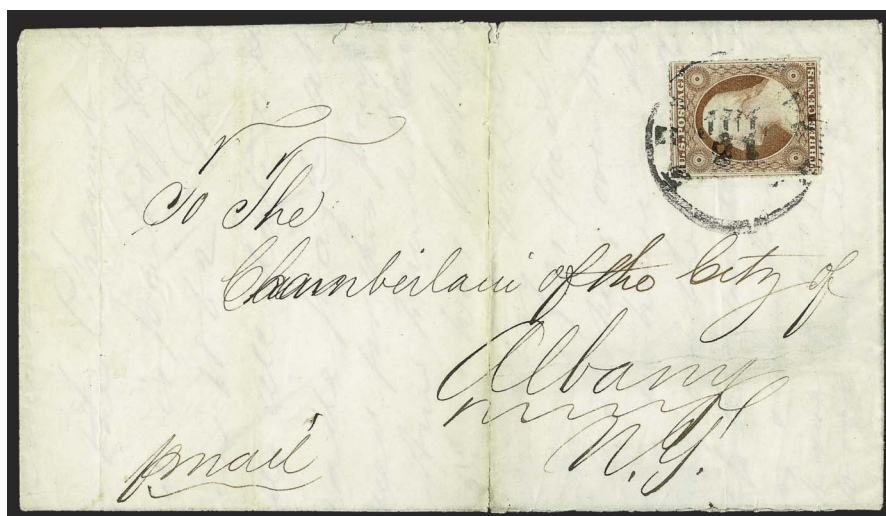 U.S. POSTAGE
THREE CENTS.
JUL
21
To The
Chamberlain of the City of
Albany
N.Y.
pr mail